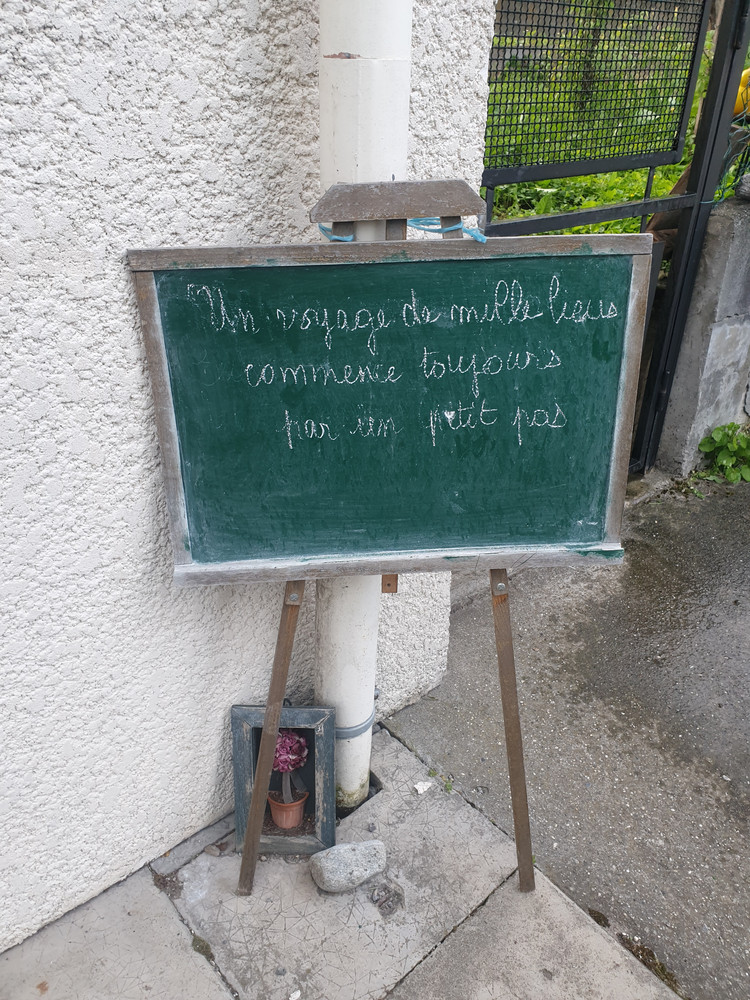 Un voyage de mille lieus
commence toujours
par un petit pas